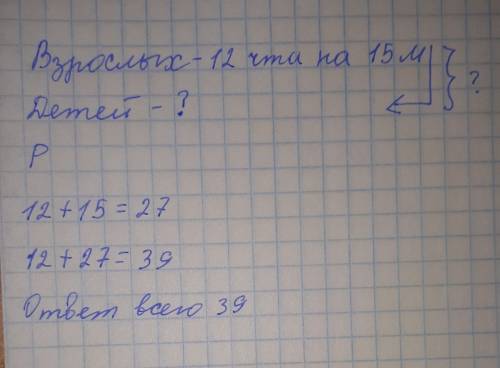 Взрослых - 12 чта на 15 м
Детей - ? ?
Р
12 + 15 = 27
12 + 27 = 39
Ответ всего 39